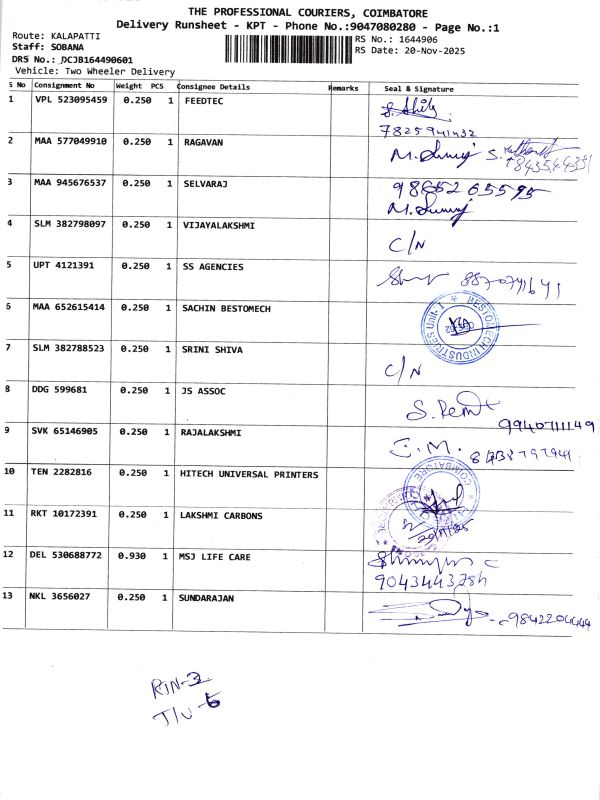 THE PROFESSIONAL COURIERS, COIMBATORE
Delivery Runsheet - KPT - Phone No.:9047080280 - Page No.:1
Route: KALAPATTI
Staff: SOBANA
DRS No.: DCJB164490601
Vehicle: Two Wheeler Delivery
RS No.: 1644906
RS Date: 20-Nov-2025
S No Consignment No Weight PCS Consignee Details Remarks Seal & Signature
1 VPL 523095459 0.250 1 FEEDTEC
7825941432
2 MAA 577049910 0.250 1 RAGAVAN
3 MAA 945676537 0.250 1 SELVARAJ 9865265595
4 SLM 382798097 0.250 1 VIJAYALAKSHMI C/N
5 UPT 4121391 0.250 1 SS AGENCIES
6 MAA 652615414 0.250 1 SACHIN BESTOMECH BESTOMECH INDUSTRIES Unit-1
7 SLM 382788523 0.250 1 SRINI SHIVA C/N
8 DDG 599681 0.250 1 JS ASSOC 9940711149
9 SVK 65146905 0.250 1 RAJALAKSHMI
10 TEN 2282816 0.250 1 HITECH UNIVERSAL PRINTERS COIMBATORE
11 RKT 10172391 0.250 1 LAKSHMI CARBONS 20/11/25
12 DEL 530688772 0.930 1 MSJ LIFE CARE
13 NKL 3656027 0.250 1 SUNDARAJAN 9842204444